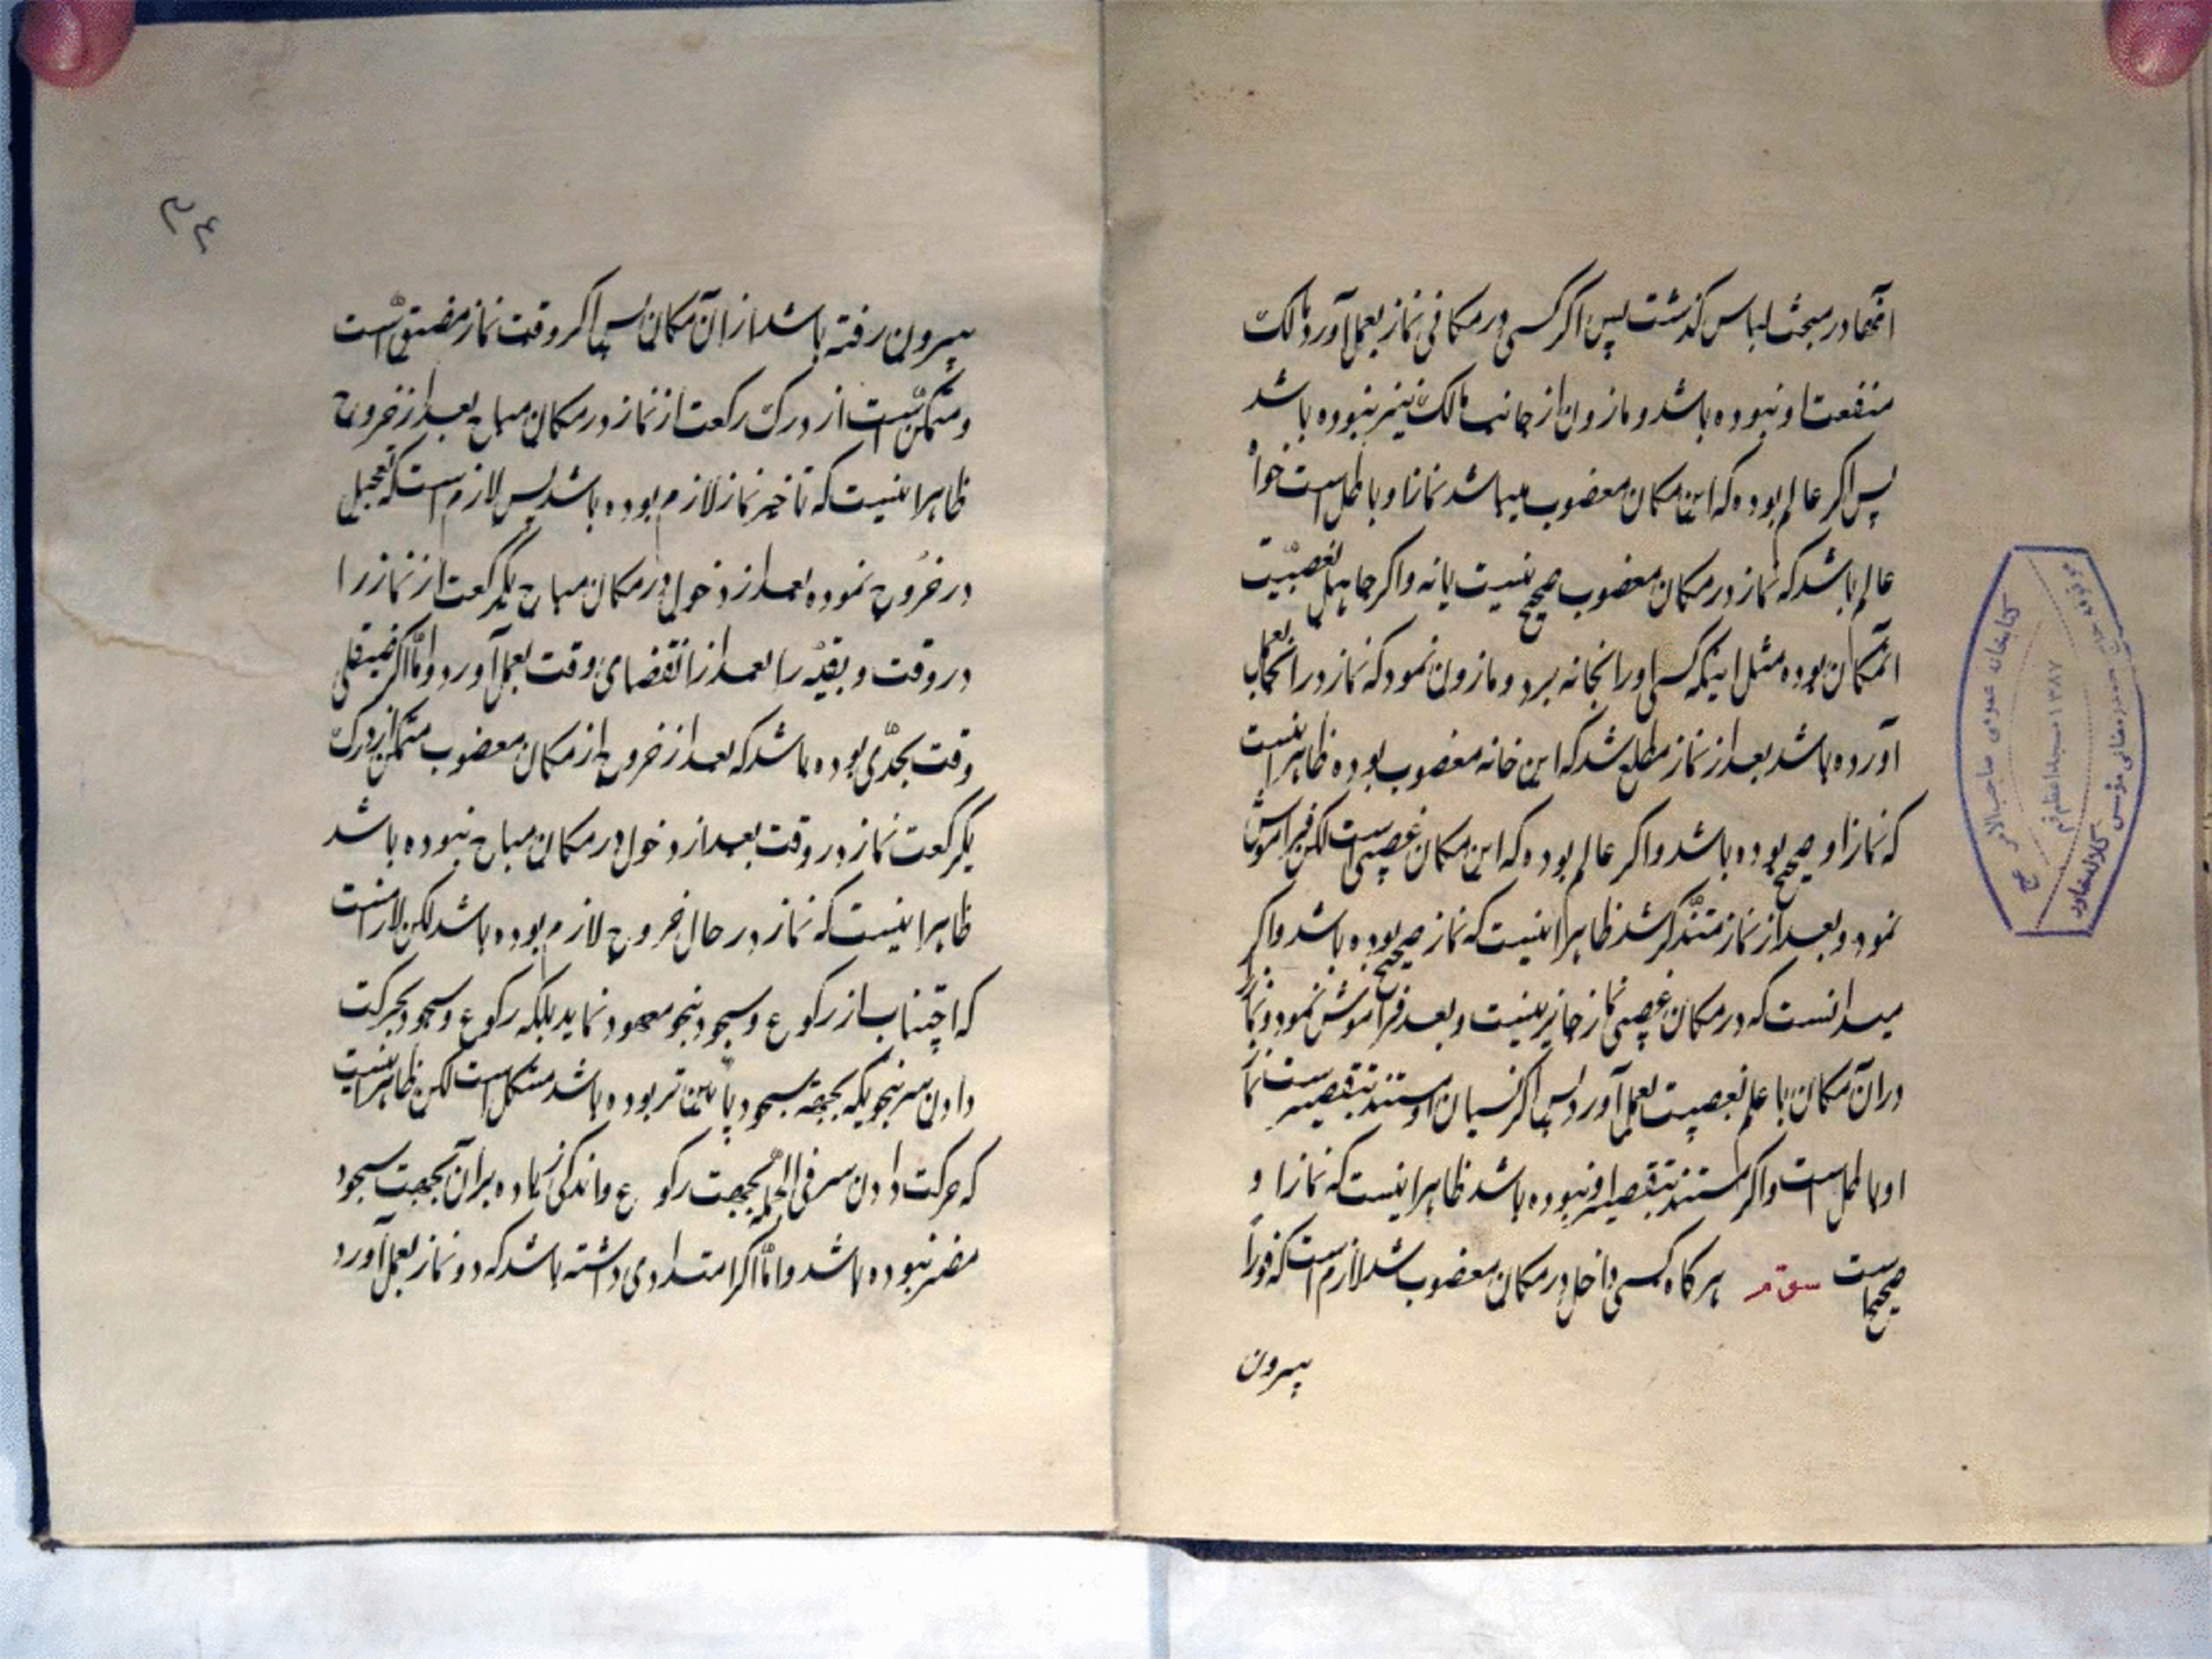 آنها در مبحث لباس گذشت پس اگر کسی در مکانی نماز بعمل آورد مالک
منفعت او نبوده باشد و ماذون از جانب مالک نیز نبوده باشد
پس اگر عالم بوده که این مکان مغضوب میباشد نماز او باطل است خواه
عالم باشد که نماز در مکان مغضوب صحیح نیست یا نه و اگر جاهل بغصبیّت
آنمکان بوده مثل اینکه کسی او را بخانه برد و ماذون نمود که نماز در آنجا بعمل
آورده باشد بعد از نماز مطلع شد که این خانه مغضوب بوده ظاهر اینست
که نماز او صحیح بوده باشد و اگر عالم بوده که این مکان غصبی است لکن فراموش
نمود و بعد از نماز متذکّر شد ظاهر اینست که نماز صحیح بوده باشد و اگر
میدانست که در مکان غصبی نماز جایز نیست و بعد فراموش نمود و نماز را
در آن مکان با علم بغصبیت بعمل آورد پس اگر نسیان او مستند بتقصیر است نماز
او باطل است و اگر مستند بتقصیر او نبوده باشد ظاهر اینست که نماز او
صحیح است سوّم هر کاه کسی داخل در مکان مغضوب شد لازم است که فوراً
بیرون
۳۴
بیرون رفته باشد از آن مکان پس اگر وقت نماز مضیّق است
و متمکّن است از درک رکعت از نماز در مکان مباح بعد از خروج
ظاهر اینست که تاخیر نماز لازم بوده باشد پس لازم است که تعجیل
در خروج نموده بعد از دخول در مکان مباح یکرکعت از نماز را
در وقت و بقیّه را بعد از انقضای وقت بعمل آورد و امّا اگر ضیقی
وقت بحدّی بوده باشد که بعد از خروج از مکان مغضوب متمکّن از درک
یکرکعت نماز در وقت بعد از دخول در مکان مباح نبوده باشد
ظاهر اینست که نماز در حال خروج لازم بوده باشد لکن لازم است
که اجتناب از رکوع و سجود بنحو معهود نماید بلکه رکوع و سجود بحرکت
دادن سر بنحویکه بجهة سجود پائین تر بوده باشد مشکل است لکن ظاهر اینست
که حرکت دادن سر فی الجمله بجهت رکوع و اندکی زیاده بر آن بجهت سجود
مضر نبوده باشد و امّا اگر امتدادی داشته باشد که دو نماز بعمل آورد
کتابخانه عمومی صاحب الامر عج
۱۳۸۷
کلاله خاور